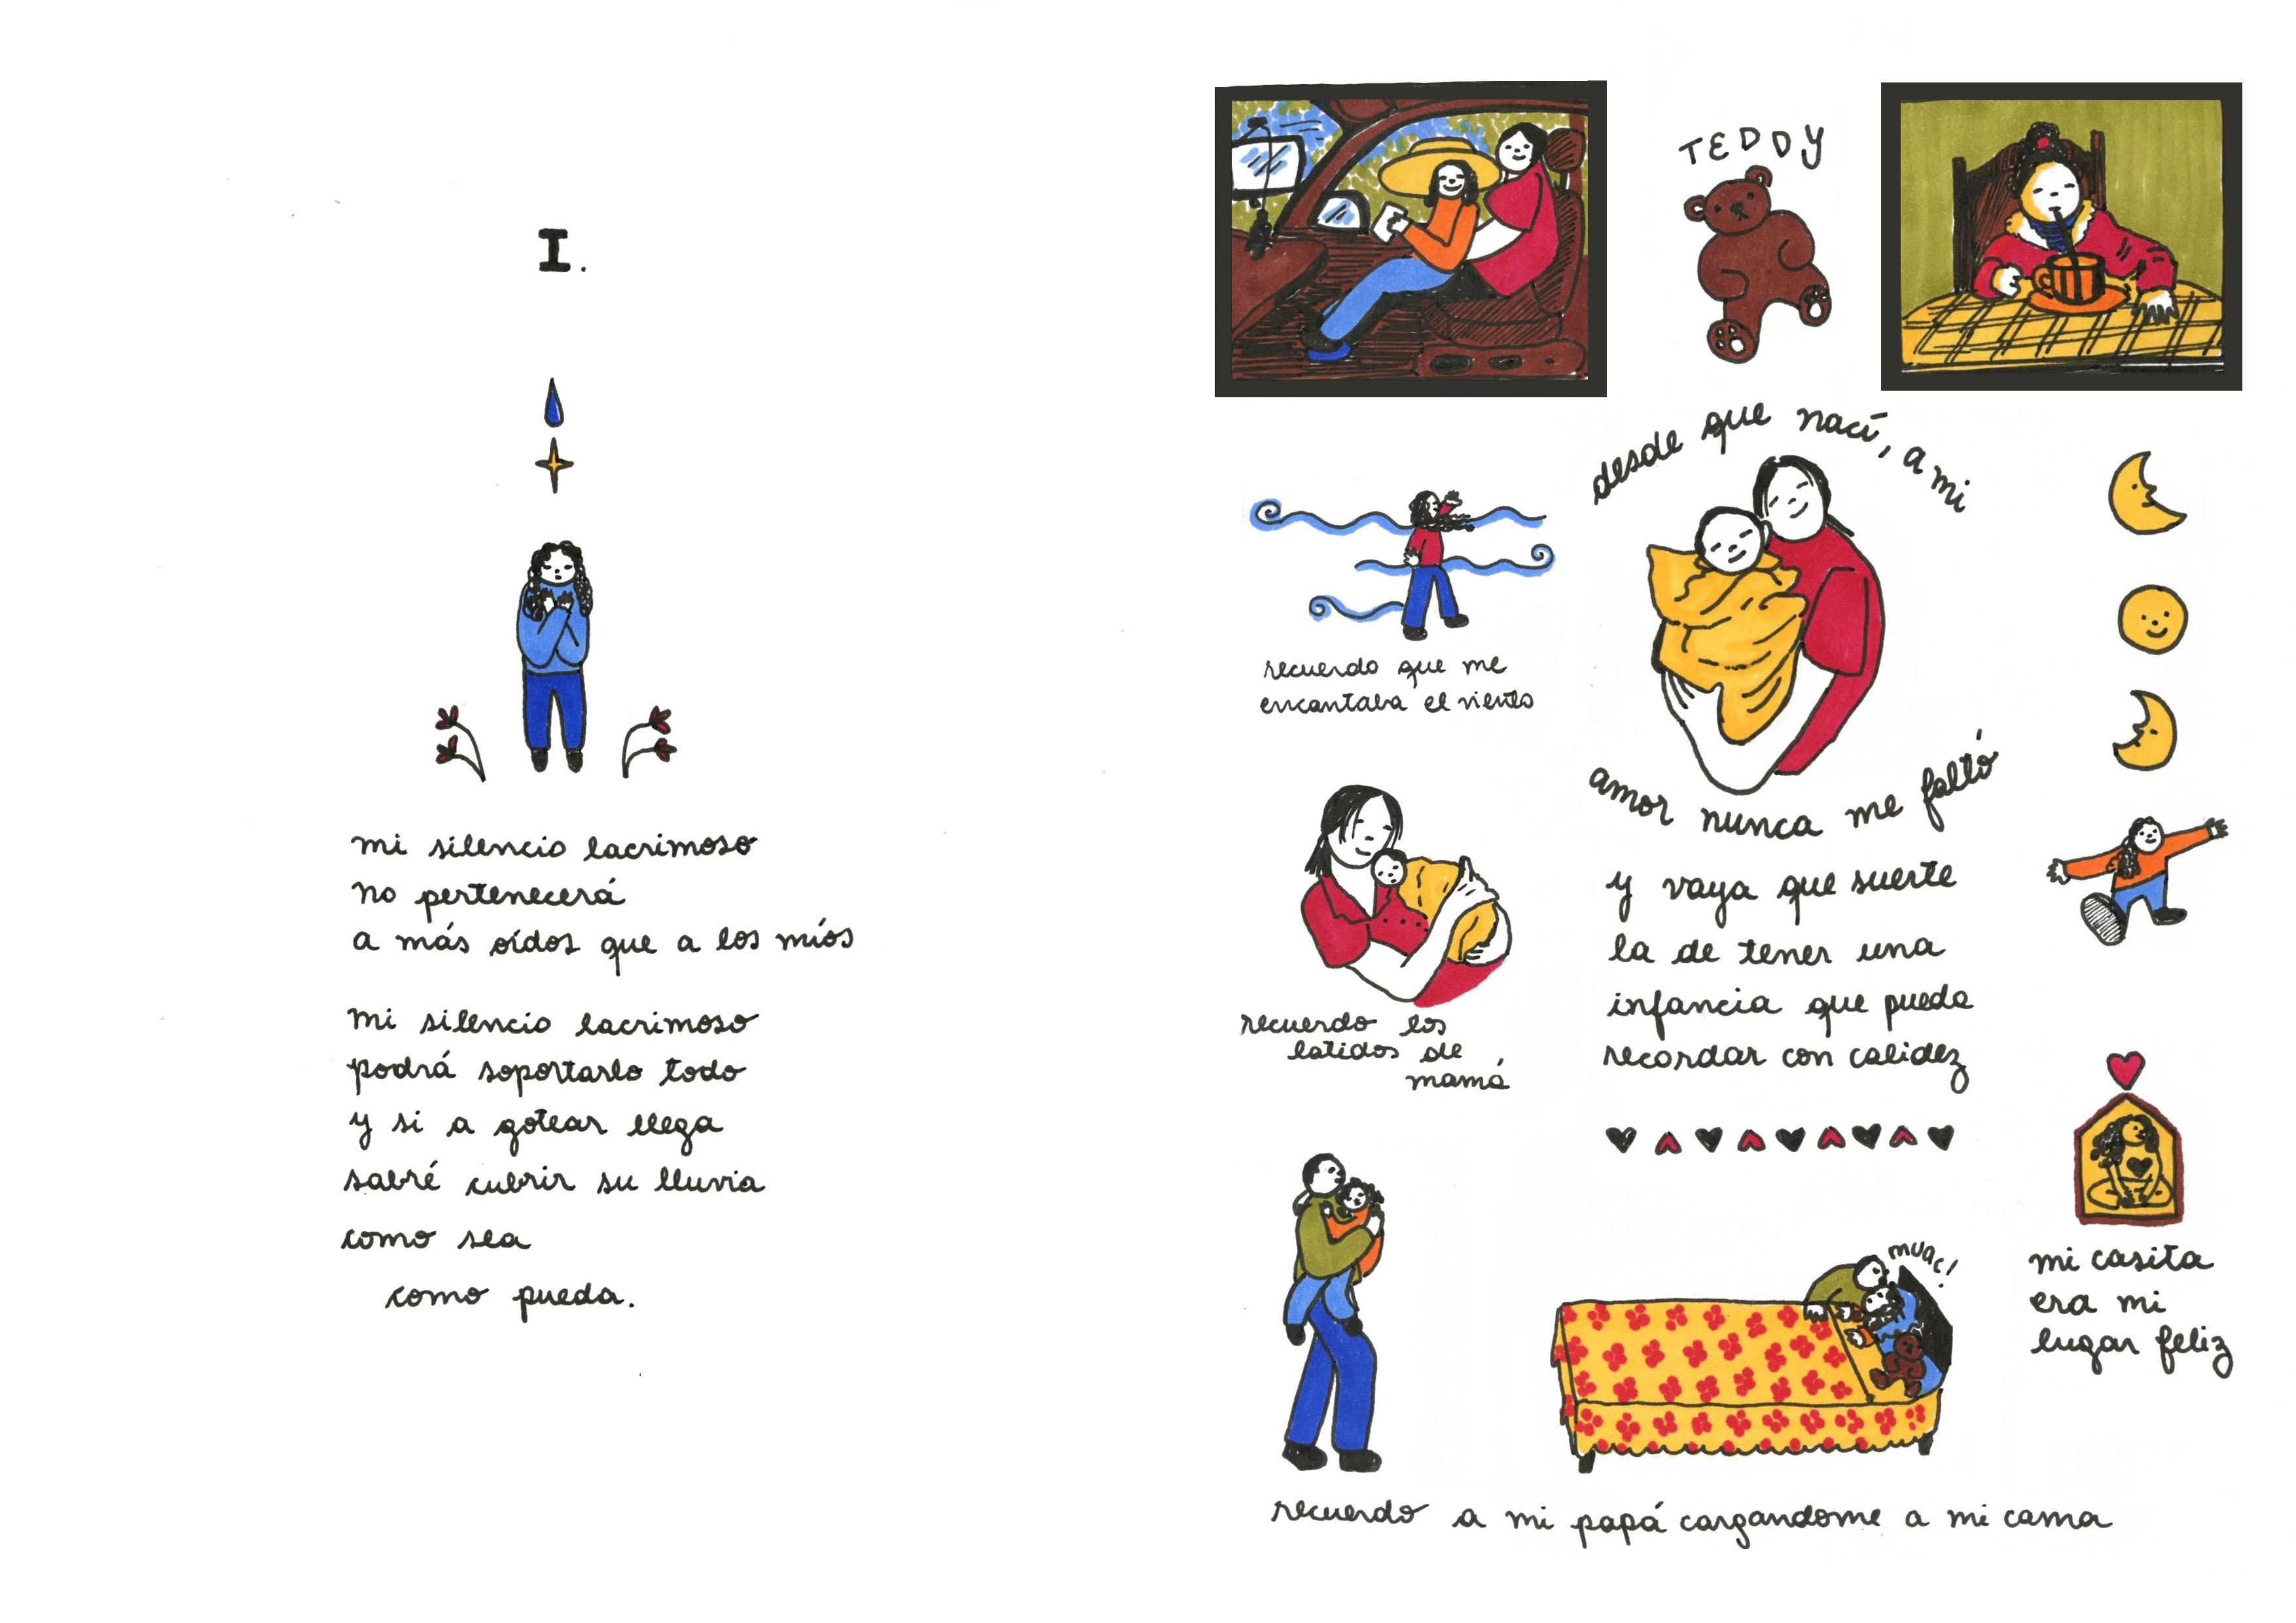 I.
mi silencio lacrimoso
no pertenecerá
a más oídos que a los míos
mi silencio lacrimoso
podrá soportarlo todo
y si a gotear llega
sabré cubrir su lluvia
como sea
como pueda.
TEDDY
desde que nací, a mi
amor nunca me faltó
y vaya que suerte
la de tener una
infancia que pueda
recordar con calidez
recuerdo que me
encantaba el viento
recuerdo los
latidos de
mamá
muac!
mi casita
era mi
lugar feliz
recuerdo a mi papá cargandome a mi cama